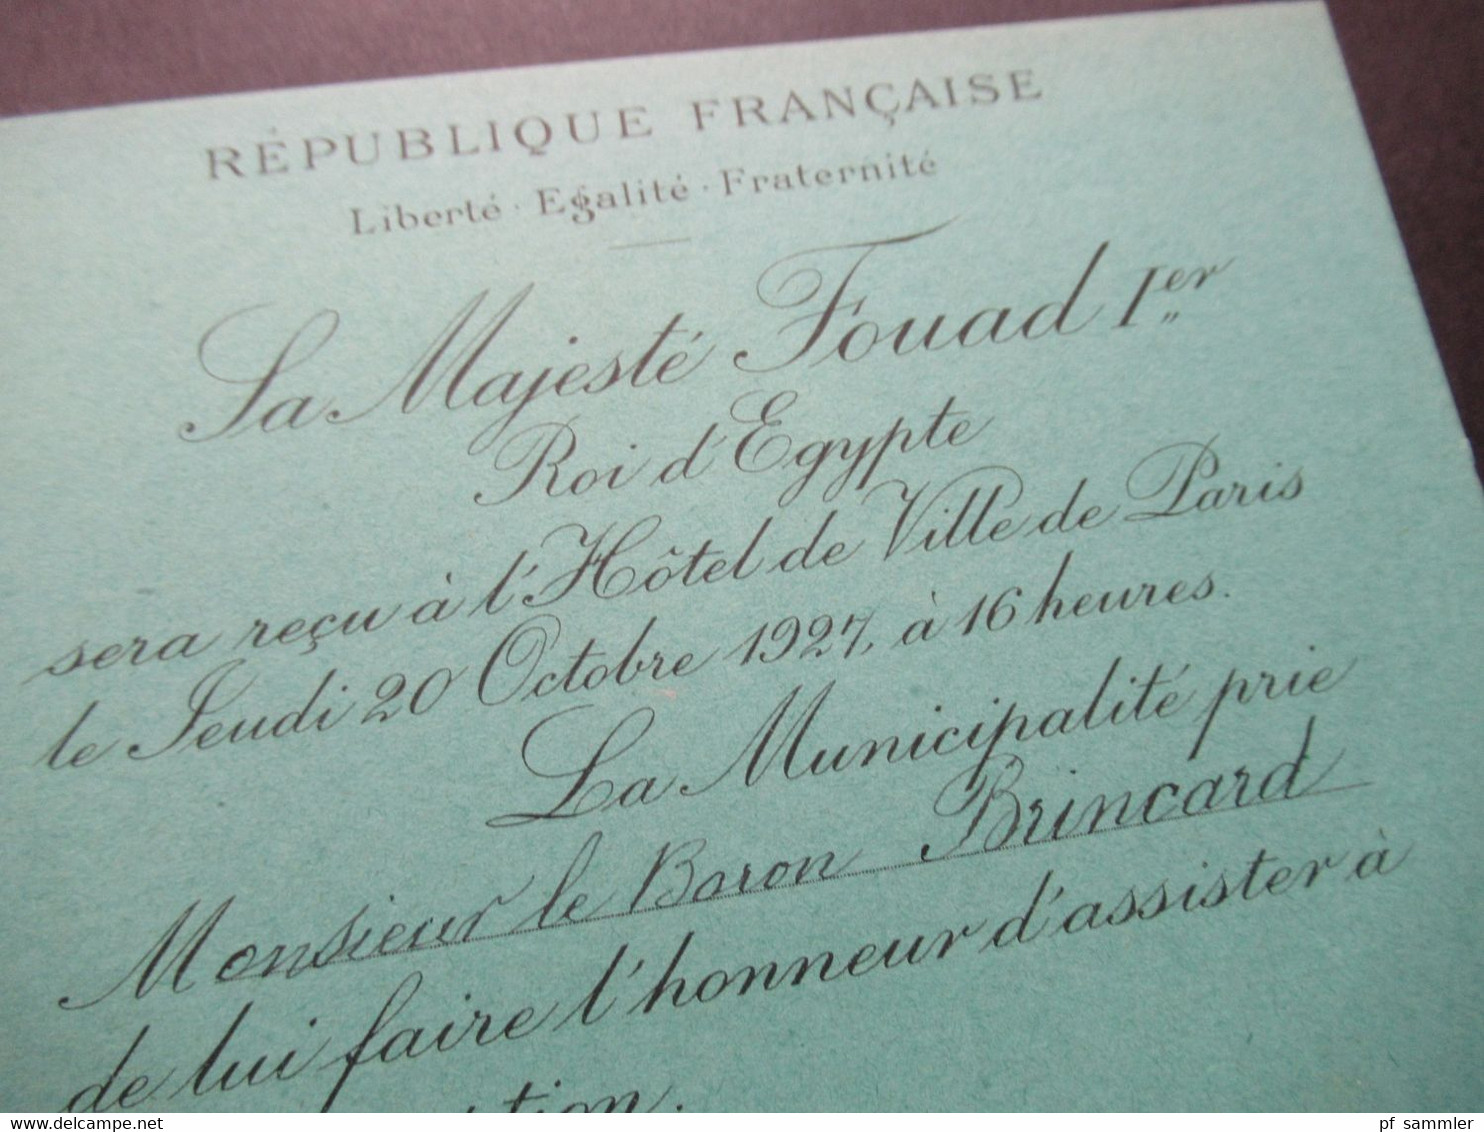 RÉPUBLIQUE FRANÇAISE
Liberté · Egalité · Fraternité
Sa Majesté Fouad Ier
Roi d'Egypte
sera reçu à l'Hôtel de Ville de Paris
le Jeudi 20 Octobre 1927, à 16 heures.
La Municipalité prie
Monsieur le Baron Brincard
de lui faire l'honneur d'assister à
delcampe.net
pf_sammler